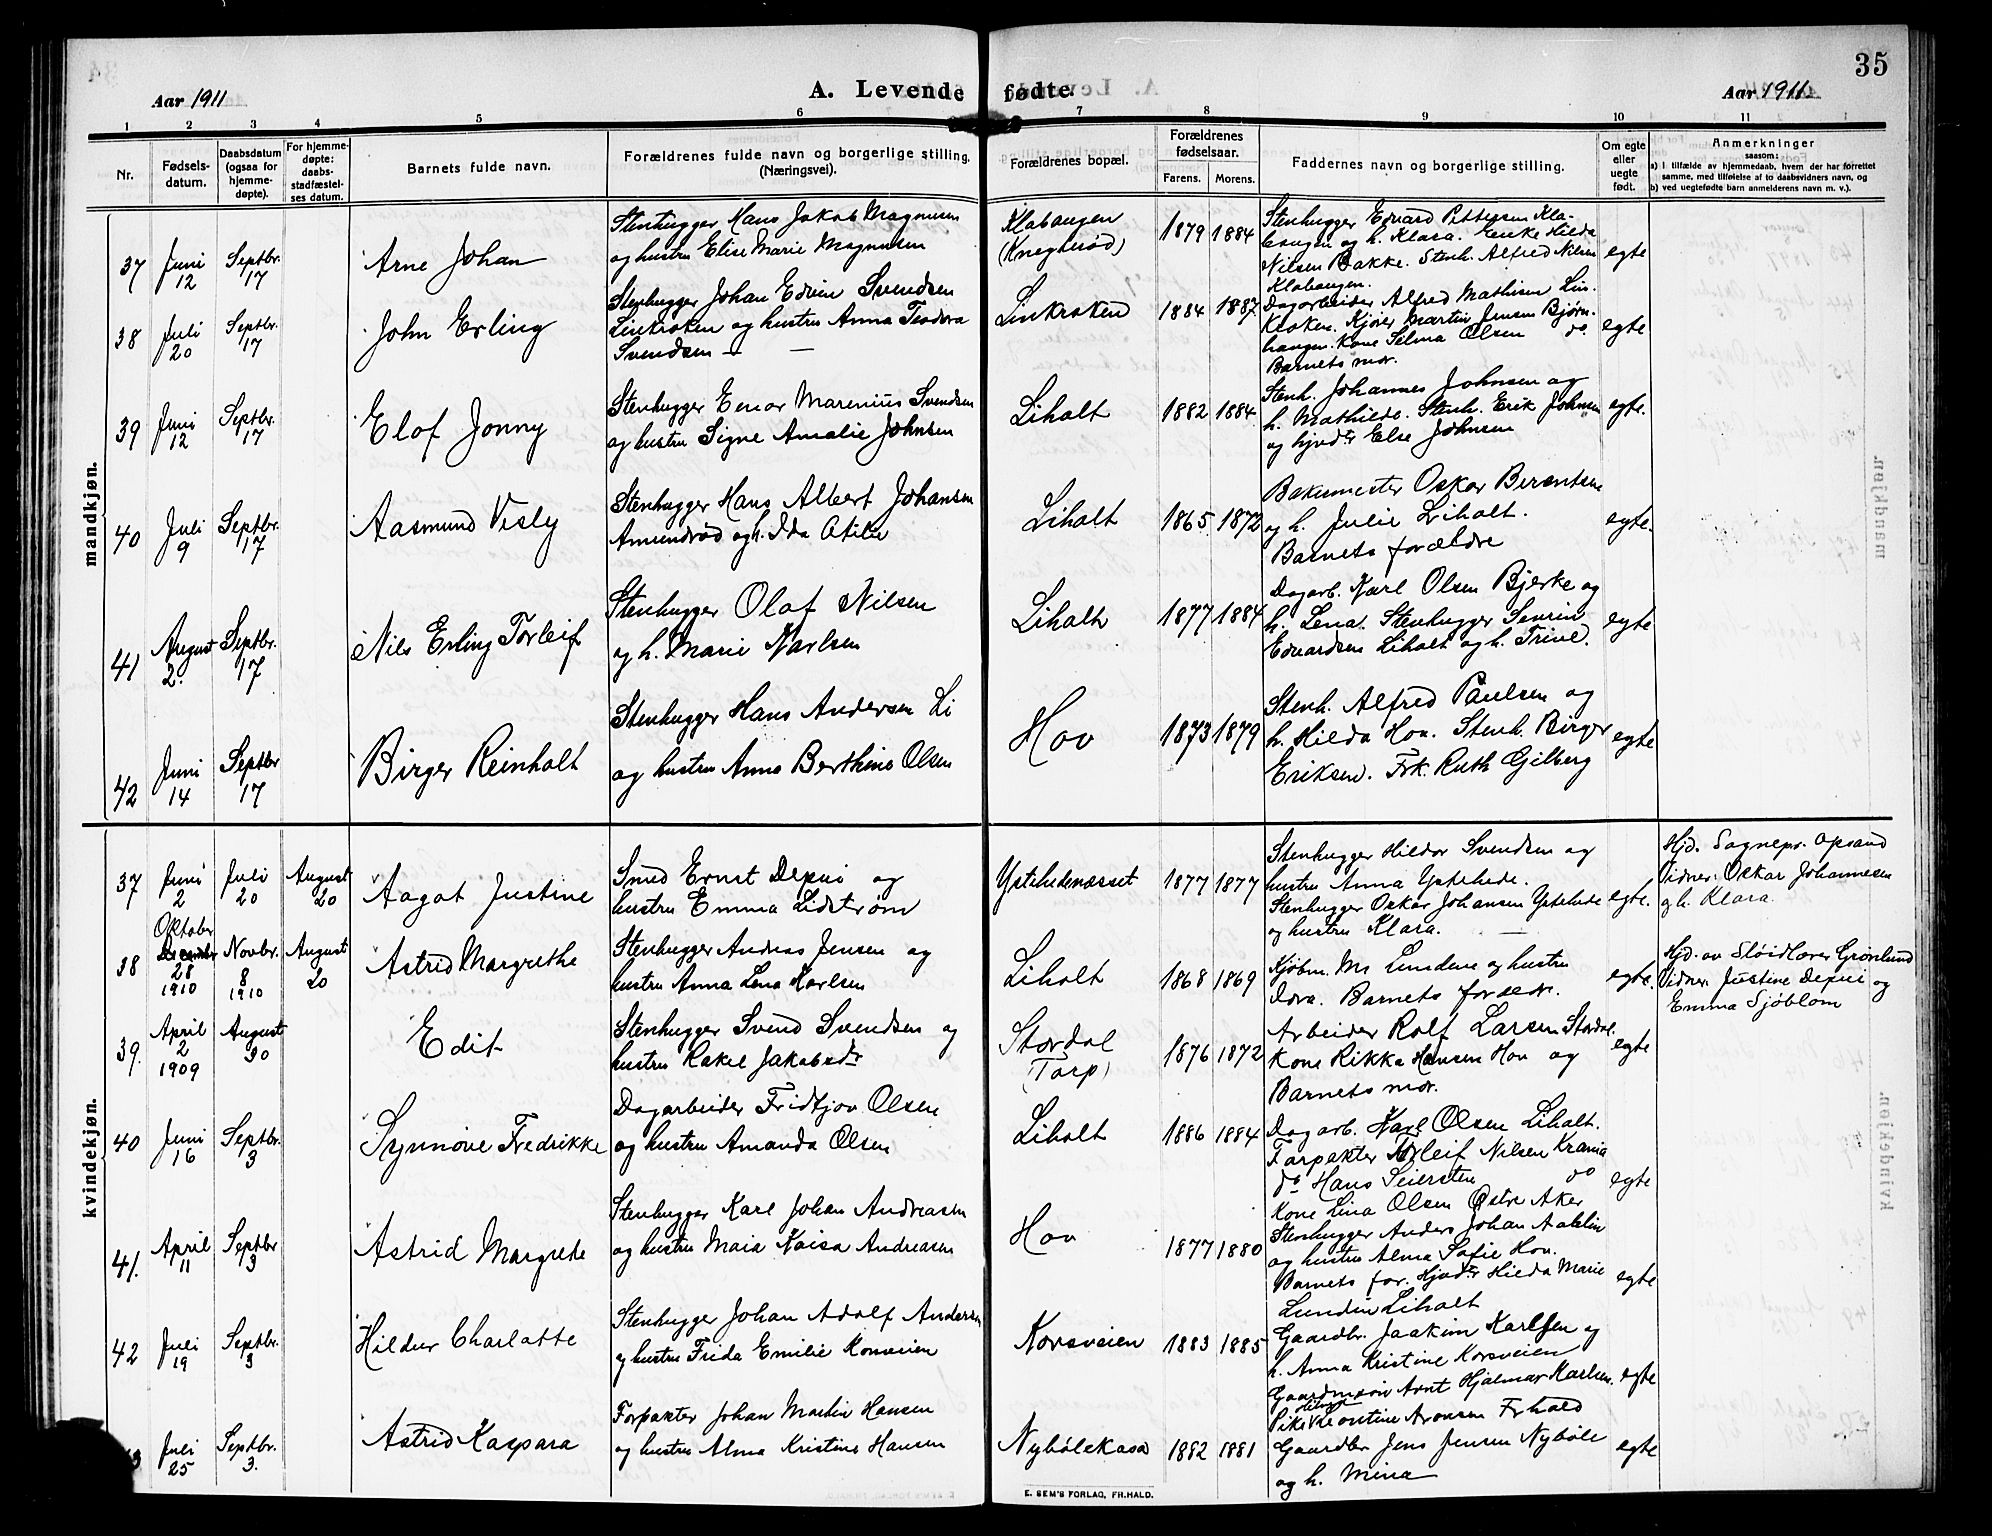 35
Aar 1911
A. Levende fødte.
Aar 1911.
1 2 3 4 5 6 7 8 9 10 11
Nr.
Fødsels-
datum.
Daabsdatum
(ogsaa for
hjemme-
døpte).
For hjemme-
døpte:
daabs-
stadfæstel-
ses datum.
Barnets fulde navn.
Forældrenes fulde navn og borgerlige stilling.
(Næringsvei).
Forældrenes bopæl.
Forældrenes
fødselsaar.
Farens. Morens.
Faddernes navn og borgerlige stilling.
Om egte
eller
uegte
født.
Anmerkninger
saasom:
a) i tilfælde av hjemmedaab, hvem der har forrettet
samme, med tilføielse af to daabsvidners navn, og
b) ved uegtefødte barn anmelderens navn m. v.).
mandkjøn.
37
Juni
12
Septbr.
17
Arne Johan
Stenhugger Hans Jakob Magnusen
og hustru Elise Marie Magnusen
Klabaugen
(Knegterød)
1879 1884
Stenhugger Edvard Pettersen Kla-
baugen og h. Klara. Enke Hilda
Nilsen Bakke. Stenh. Alfred Nilsen
Klabaugen.
egte
38
Juli
20
Septbr.
17
John Erling
Stenhugger Johan Edvin Svendsen
Linkroken og hustru Anna Teodora
Svendsen
Linkroken
1884 1887
Dagarbeider Alfred Mathisen Lin-
kroken. Kjører Martin Jensen Bjørn-
haugen. Kone Selma Olsen do.
Barnets mor.
egte
39
Juni
12
Septbr.
17
Elof Jonny
Stenhugger Einar Marenius Svendsen
og hustru Signe Amalie Johnsen
Liholt
1882 1884
Stenh. Johannes Johnsen og
h. Mathilde. Stenh. Erik Johnsen
og hjvdtr Else Johnsen
egte.
40
Juli
9
Septbr.
17
Aasmund Visly
Stenhugger Hans Albert Johansen
Amundrød og h. Ida Otilie
Liholt
1865 1872
Bakermester Oskar Berentsen
og h. Julie Liholt.
Barnets forældre
egte.
41
August
2.
Septbr.
17
Nils Erling Torleif
Stenhugger Olaf Nilsen
og h. Marie Karlsen
Liholt
1877 1884
Dagarb. Karl Olsen Bjerke og
h. Lena. Stenhugger Severin
Edvardsen Liholt og h. Trine.
egte
42
Juni
14
Septbr
17
Birger Reinholt
Stenhugger Hans Andersen Li
og hustru Anna Berthine Olsen
Hov
1873 1879
Stenh. Alfred Paulsen og
h. Hilda Hov. Stenh. Birger
Eriksen. Frk. Ruth Gilberg
egte
kvindekjøn.
37
Juni
2
Juli
20
August
20
Aagot Justine
Smed Ernst Depui og
hustru Emma Lidstrøm
Ystehedenæsset
1877 1877
Stenhugger Hildor Svendsen og
hustru Anna Ystehede.
Stenhugger Oskar Johansen Ystehede
og hustru Klara.
egte.
Hjd. Sognepr. Opsand
Vidner: Oskar Johannesen
og h. Klara.
38
Oktober
28
1910
Novbr.
8
1910
August
20
Astrid Margrethe
Stenhugger Andreas Jensen og
hustru Anna Lena Karlsen
Liholt
1868 1869
Kjøbm. Lundene og hustru
Barnets forældr.
egte.
Hjd. av Sløidlærer Grønlund
Vidner: Justine Depui og
Emma Sjöblom
39.
April
2
1909
August
20
Edit
Stenhugger Svend Svendsen og
hustru Rakel Jakobsdtr
Stordal
(Torp)
1876 1872
Arbeider Rolf Larsen Stordal.
Kone Rikka Hansen Hov og
Barnets mor.
egte
40
Juni
16
Septbr.
3
Synnøve Fredrikke
Dagarbeider Fridtjov Olsen
og hustru Amanda Olsen
Liholt
1886 1884
Dagarb. Karl Olsen Liholt.
Forpakter Torleif Nilsen Krania
do Hans Seiersten do
Kone Lina Olsen Østre Aker
egte
41.
April
11
Septbr
3
Astrid Margrete
Stenhugger Karl Johan Andreasen
og hustru Maia Kaisa Andreasen
Hov
1877 1880
Stenhugger Anders Johan Aahlin
og hustru Alma Sofie Hov.
Barnets far. Hjvdtr Hilda Marie
Lunden Liholt
egte
42
Juli
19
Septbr.
3
Hildur Charlotte
Stenhugger Johan Adolf Andersen
og hustru Frida Emilie Korsveien
Korsveien
1883 1885
Gaardbr. Joakim Karlsen og
h. Anna Kristine Korsveien
Gaardmann Arnt Hjalmar Karlsen.
Pike Leontine Aronsen Frhald
egte
3
Juli
25
Septbr.
3.
Astrid Kaspara
Forpakter Johan Martin Hansen
og hustru Alma Kristine Hansen
Nybølekasa
1882 1881
Gaardbr Jens Jensen Nybøle
og h. Mina
egte
E. SEM'S FORLAG, FR.HALD.